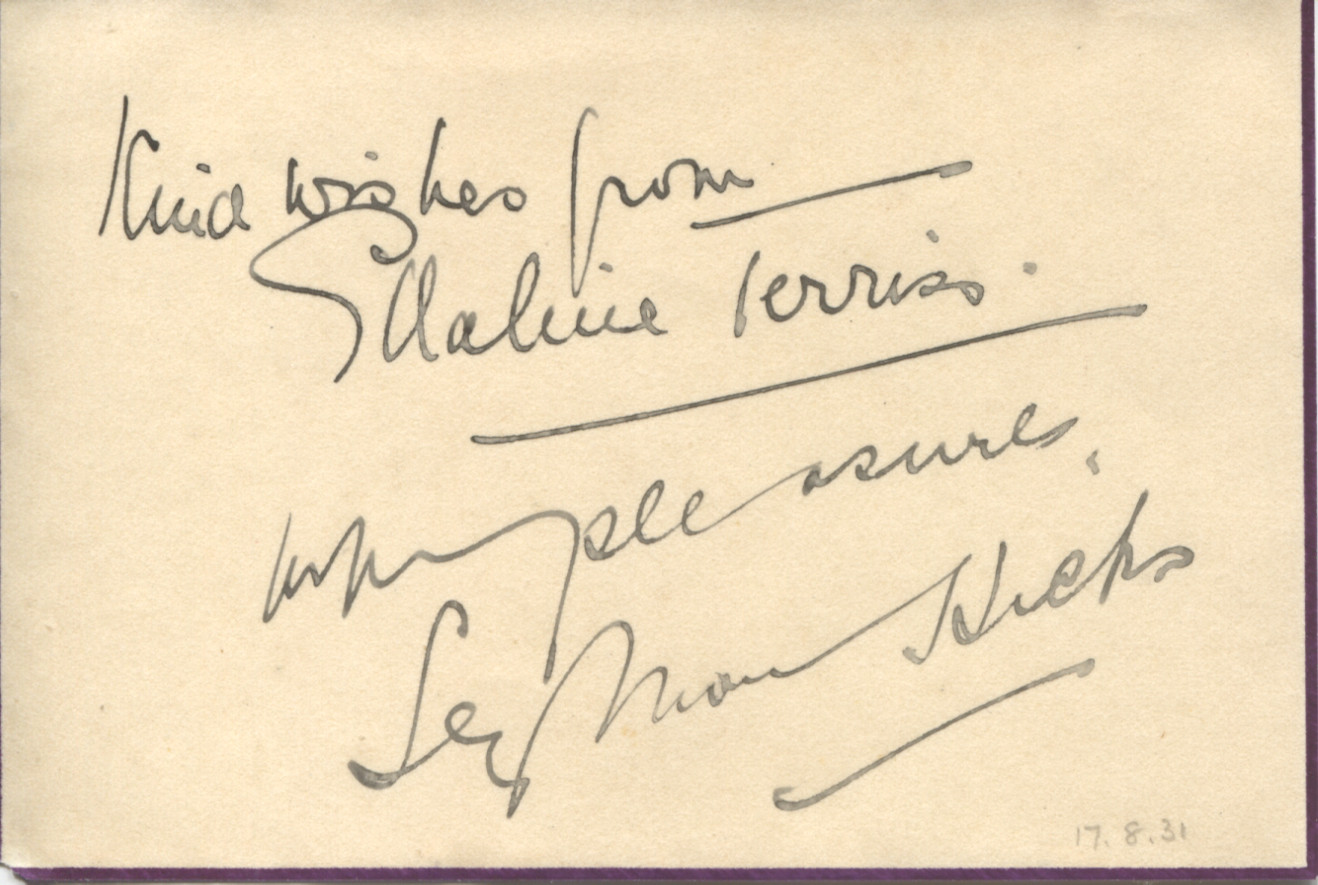 Kind wishes from
Ellaline Terriss.
pleasure.
Seymour Hicks
17.8.31